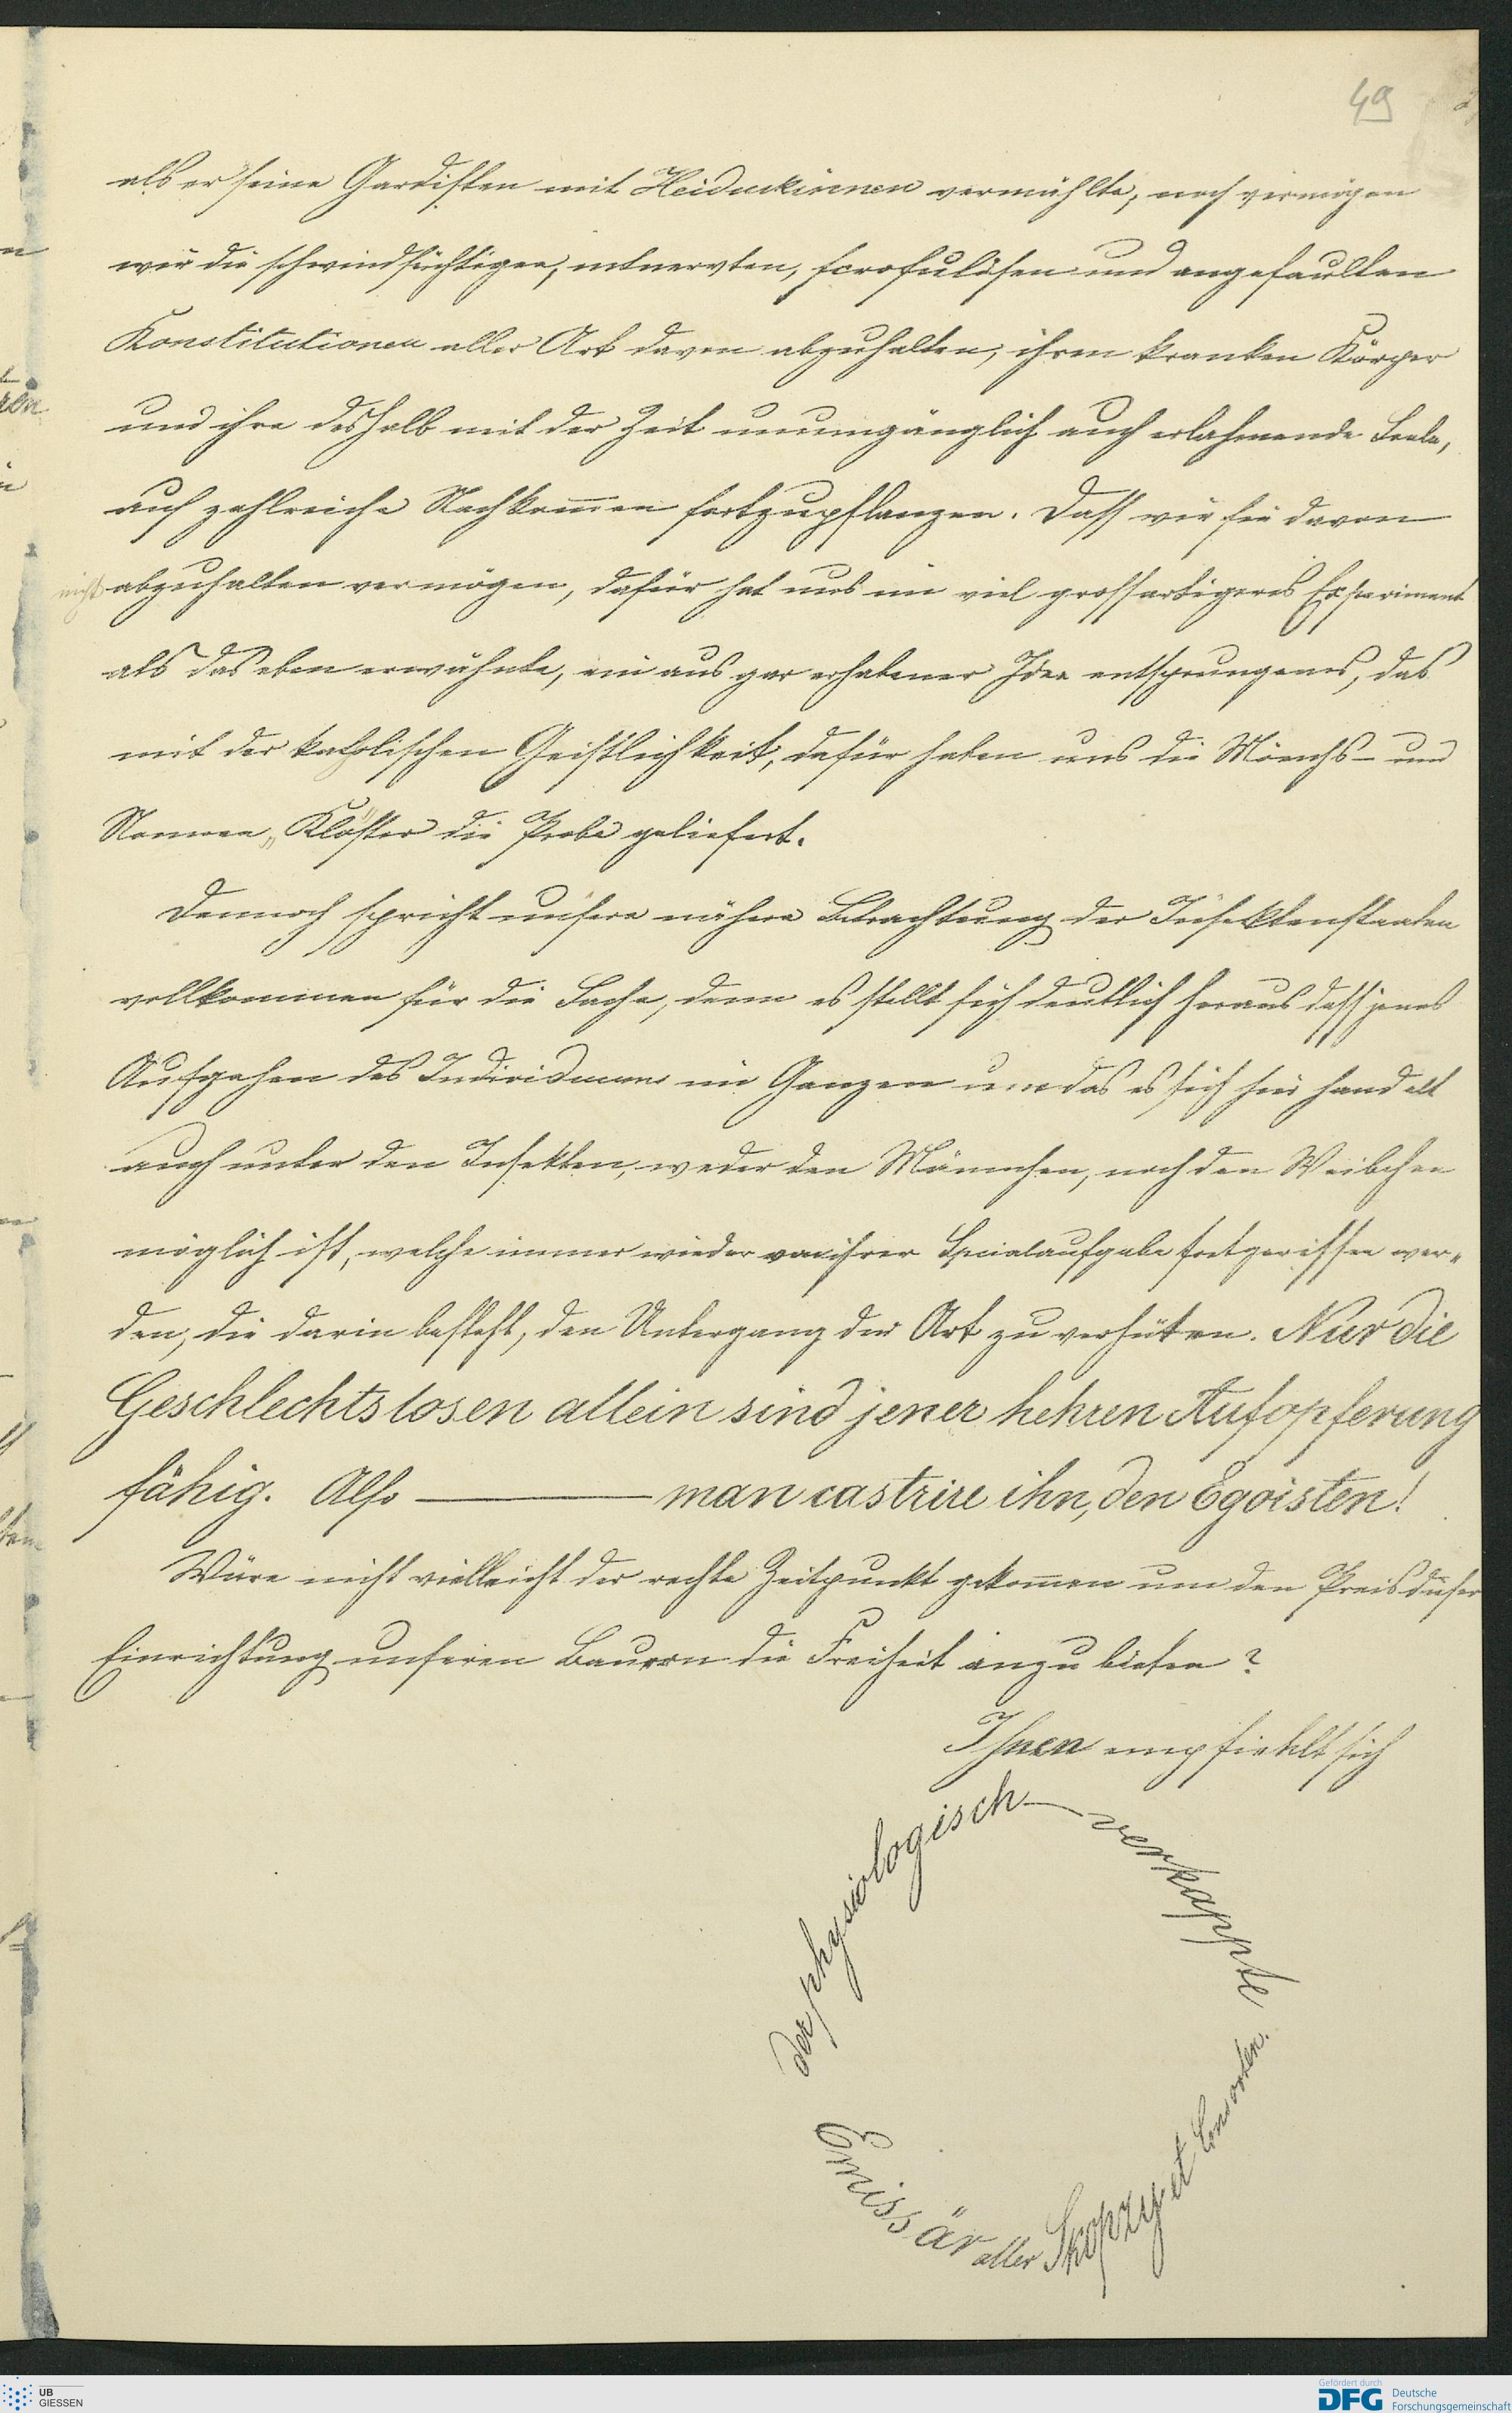 49
als er seine Gardisten mit Heiduckinnen vermählte, noch vermögen
wir die schwindsüchtigen, entnervten, scrofulösen und angefaulten
Konstitutionen aller Art davon abzuhalten, ihren kranken Körper
und ihre deshalb mit der Zeit unumgänglich auch erlahmende Seele,
auf zahlreiche Nachkom̄en fortzupflanzen. Dass wir sie davon
nicht abzuhalten vermögen, dafür hat uns ein viel grossartigeres Experiment
als das eben erwähnte, ein aus gar erhabener Idee entsprungenes, das
mit der katholischen Geistlichkeit, dafür haben uns die Mönchs- und
Nonnen„Klöster die Probe geliefert.
Dennoch spricht unsere nähere Betrachtung der Insektenstaaten
vollkommen für die Sache, denn es stellt sich deutlich heraus dass jenes
Aufgehen des Individuums im Ganzen um das es sich hier handelt
auch unter den Insekten, weder den Männchen, noch den Weibchen
möglich ist, welche immer wieder von ihrer Specialaufgabe fortgerissen wer„
den, die darin besteht, den Untergang der Art zu verhüten. Nur die
Geschlechtslosen allein sind jener hehren Aufopferung
fähig. Also ——— man castrire ihn, den Egoisten!
Wäre nicht vielleicht der rechte Zeitpunkt gekom̄en um den Preis dieser
Einrichtung unseren Bauern die Freiheit anzubieten?
Ihnen empfiehlt sich
der physiologisch— verkappte
Emissär aller Skopzy et Consorten.
UB
GIESSEN
Gefördert durch
DFG Deutsche
Forschungsgemeinschaft